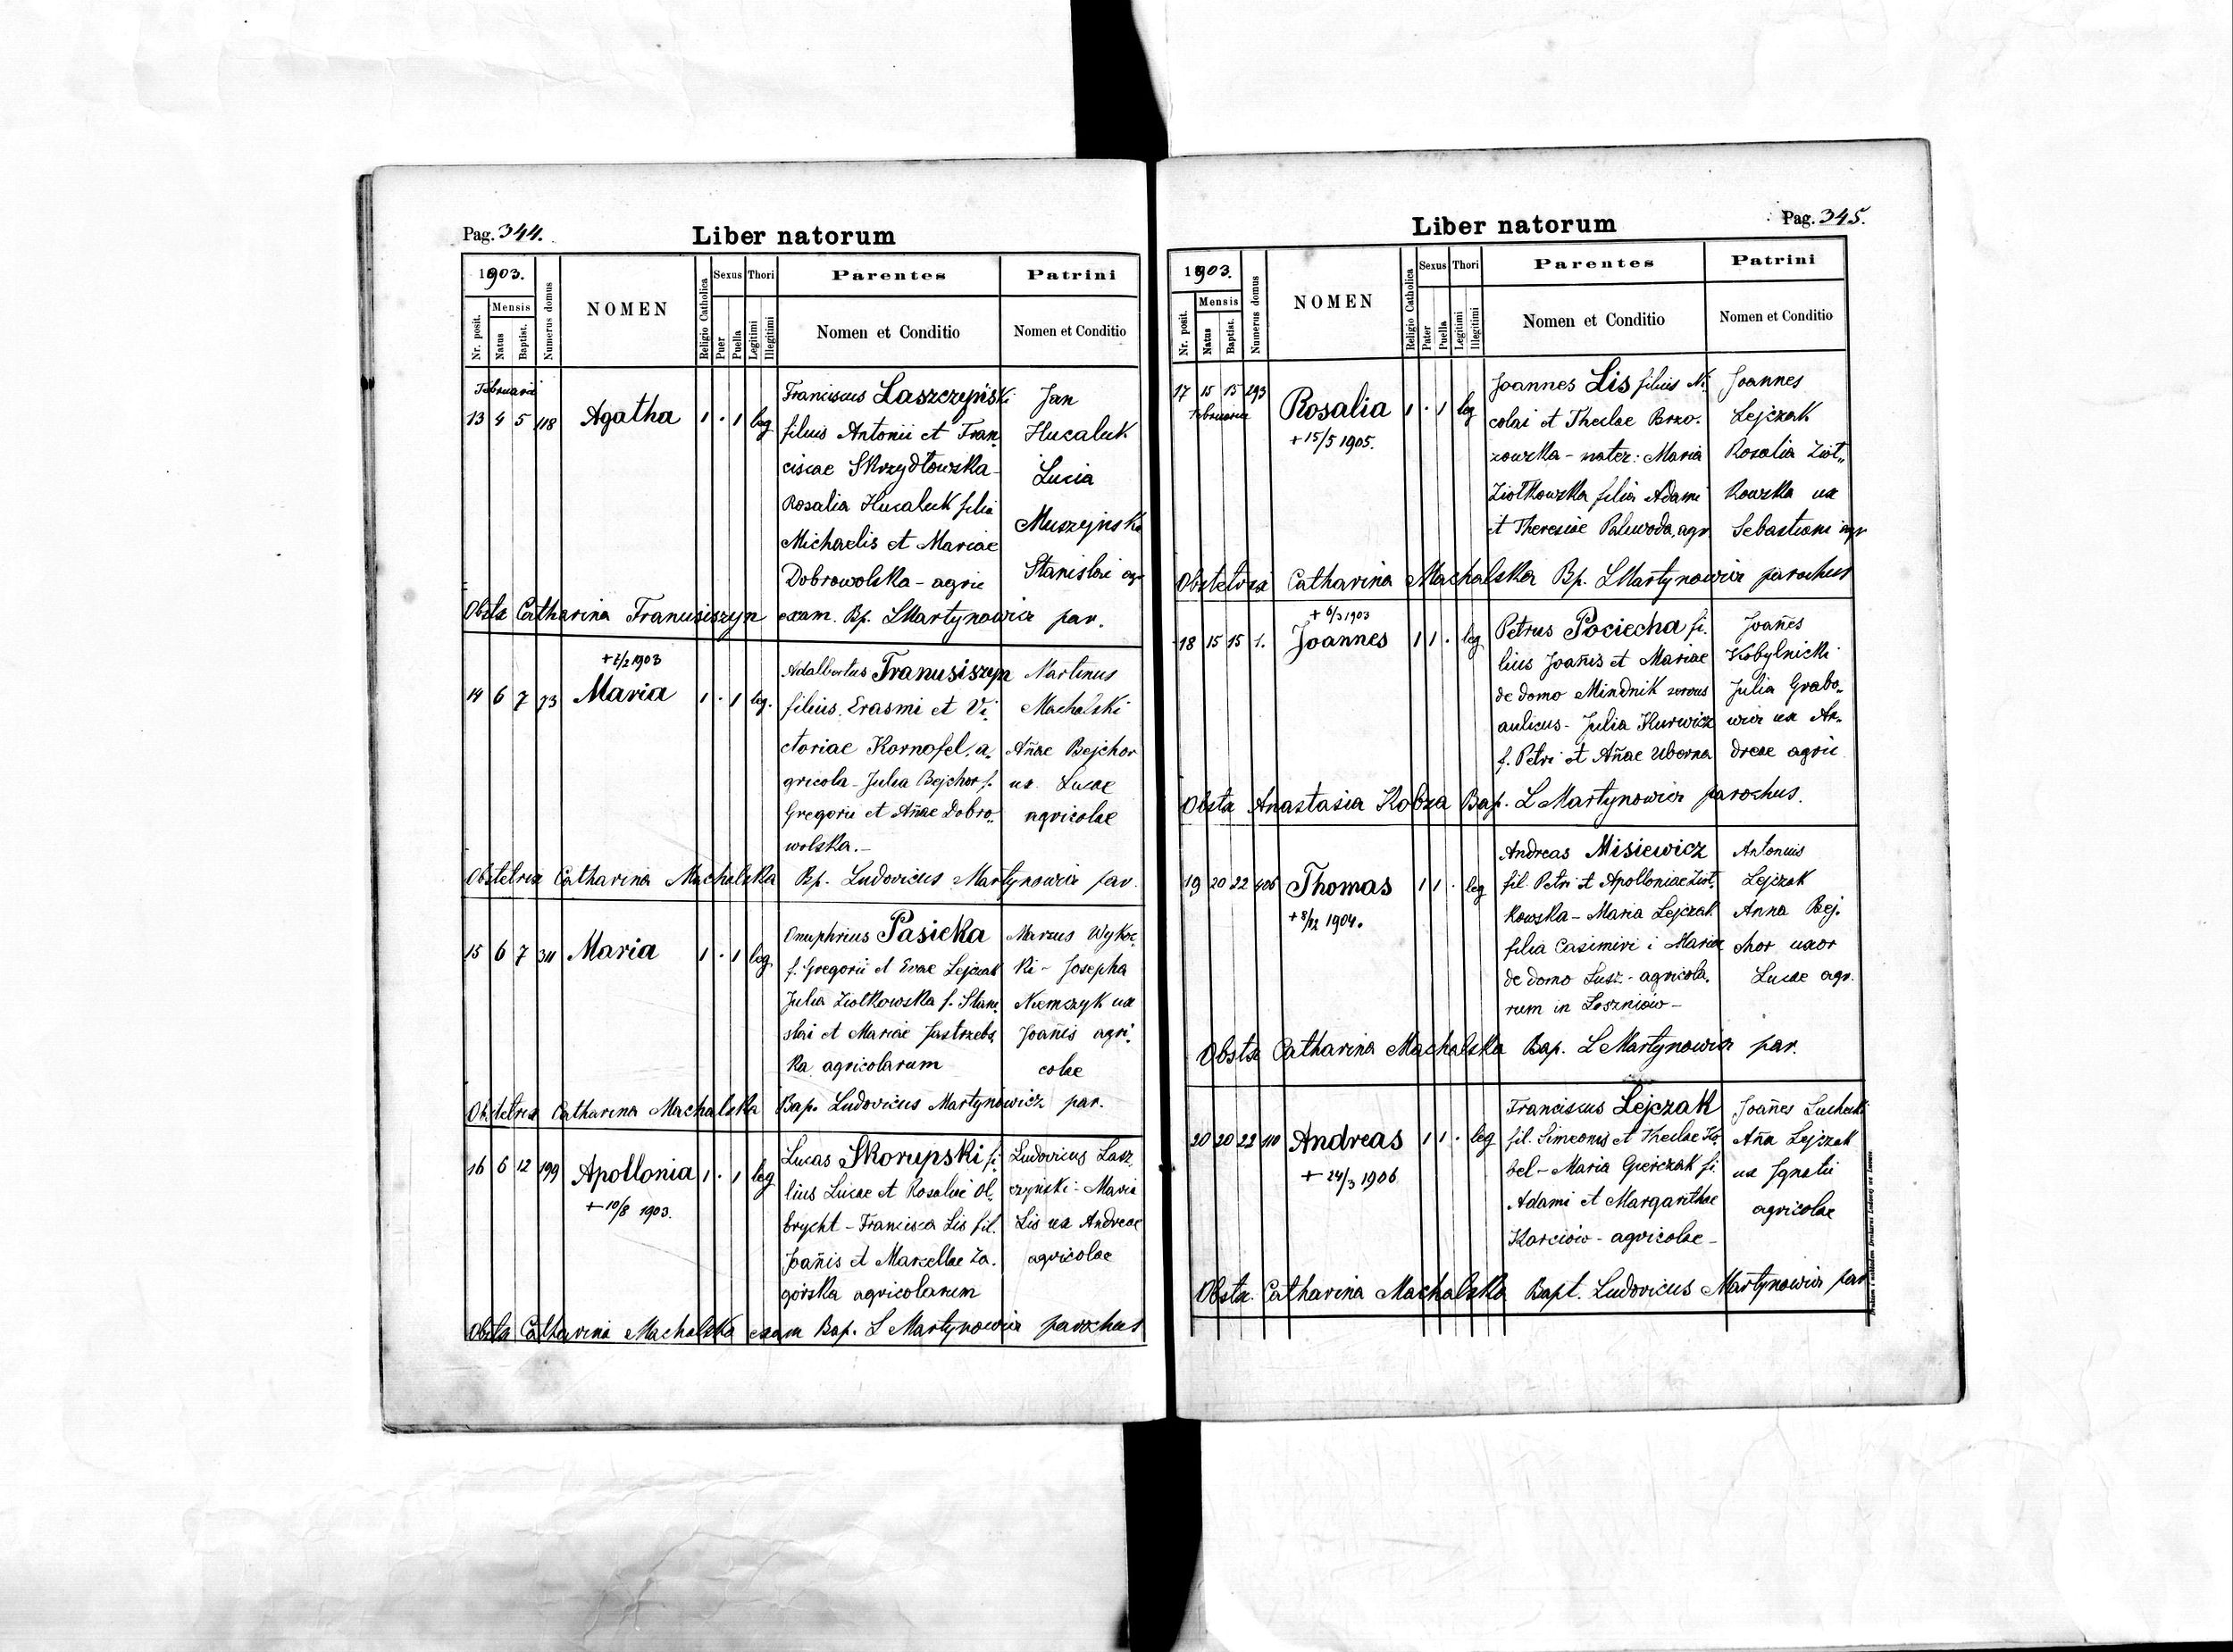 Pag. 344.
Liber natorum
1903.
Nr. posit.
Mensis
Natus
Baptist.
Numerus domus
NOMEN
Religio Catholica
Sexus
Puer
Puella
Thori
Legitimi
Illegitimi
Parentes
Nomen et Conditio
Patrini
Nomen et Conditio
Februarii
13 4 5 118 Agatha 1 . 1 leg
Franciscus Laszczyński
filius Antonii et Fran
ciscae Skrzydłowska
Rosalia Hucaluk filia
Michaelis et Mariae
Dobrowolska - agric
Jan
Hucaluk
Lucia
Muszyńska
Stanislai agr
Obstx Catharina Franusiszyn exam. Bp. LMartynowicz par.
+2/2 1903
14 6 7 73 Maria 1 . 1 leg.
Adalbertus Franusiszyn
filius Erasmi et Vi.
ctoriae Kornafel, a„
gricola - Julia Bejchor f.
Gregorii et Añae Dobro„
wolska.-
Martinus
Machalski
Añae Bejchor
ux Lucae
agricolae
Obstetrix Catharina Machalska Bp. Ludovicus Martynowicz par.
15 6 7 311 Maria 1 . 1 leg
Onuphrius Pasieka
f. Gregorii et Evae Lejczak
Julia Ziolkowska f. Stani
slai et Mariae Jastrzebs
ka agricolarum
Marcus Wykoc
ki - Josepha
Niemczyk ux
Joañis agri.
colae
Obstetrix Catharina Machalska Bap. Ludovicus Martynowicz par.
16 6 12 199 Apollonia 1 . 1 leg
+ 10/8 1903.
Lucas Skorupski fi
lius Lucae et Rosaliae Ol.
brycht - Francisca Lis fil.
Joañis et Marcellae Za.
górska agricolarum
Ludovicus Lasz
czyński - Maria
Lis ux Andreae
agricolae
Obstx Catharina Machalska exam Bap. L Martynowicz parochus
Pag. 345.
Liber natorum
1903.
Nr. posit.
Mensis
Natus
Baptist.
Numerus domus
NOMEN
Religio Catholica
Sexus
Pater
Puella
Thori
Legitimi
Illegitimi
Parentes
Nomen et Conditio
Patrini
Nomen et Conditio
17 15 15 293 Rosalia 1 . 1 leg
Februarii
+ 15/5 1905.
Joannes Lis filius Ni
colai et Theclae Brzo.
zowska - mater: Maria
Ziolkowska filia Adami
et Theresiae Paluwoda, agr.
Joannes
Lejczak
Rosalia Ziół„
kowska ux
Sebastiani agr
Obstetrix Catharina Machalska Bp. LMartynowicz parochus
+ 6/3 1903
18 15 15 1. Joannes 1 1 . leg
Petrus Pociecha fi.
lius Joañis et Mariae
de domo Mindnik servus
aulicus - Julia Kurwicz
f. Petri et Añae Uborna
Joañes
Kobylnicki
Julia Grabo„
wicz ux An„
dreae agric
Obstx Anastasia Kobza Bap. L Martynowicz parochus.
19 20 22 406 Thomas 1 1 . leg
+ 8/12 1904.
Andreas Misiewicz
fil. Petri et Apolloniae Ziół.
kowska - Maria Lejczak
filia Casimiri i Mariae
de domo Susz. - agricola.
rum in Loszniów -
Antonius
Lejczak
Anna Bej.
chor uxor
Lucae agr.
Obstx Catharina Machalska Bap. L Martynowicz par.
20 20 22 110 Andreas 1 1 . leg
+ 24/3 1906
Franciscus Lejczak
fil. Simeonis et Theclae Ko.
bel - Maria Gierczak fi
Adami et Margarithae
Karciów - agricolae -
Joañes Luchecki
Aña Lejczak
ux Ignatii
agricolae
Obstx. Catharina Machalska Bapt. Ludovicus Martynowicz par